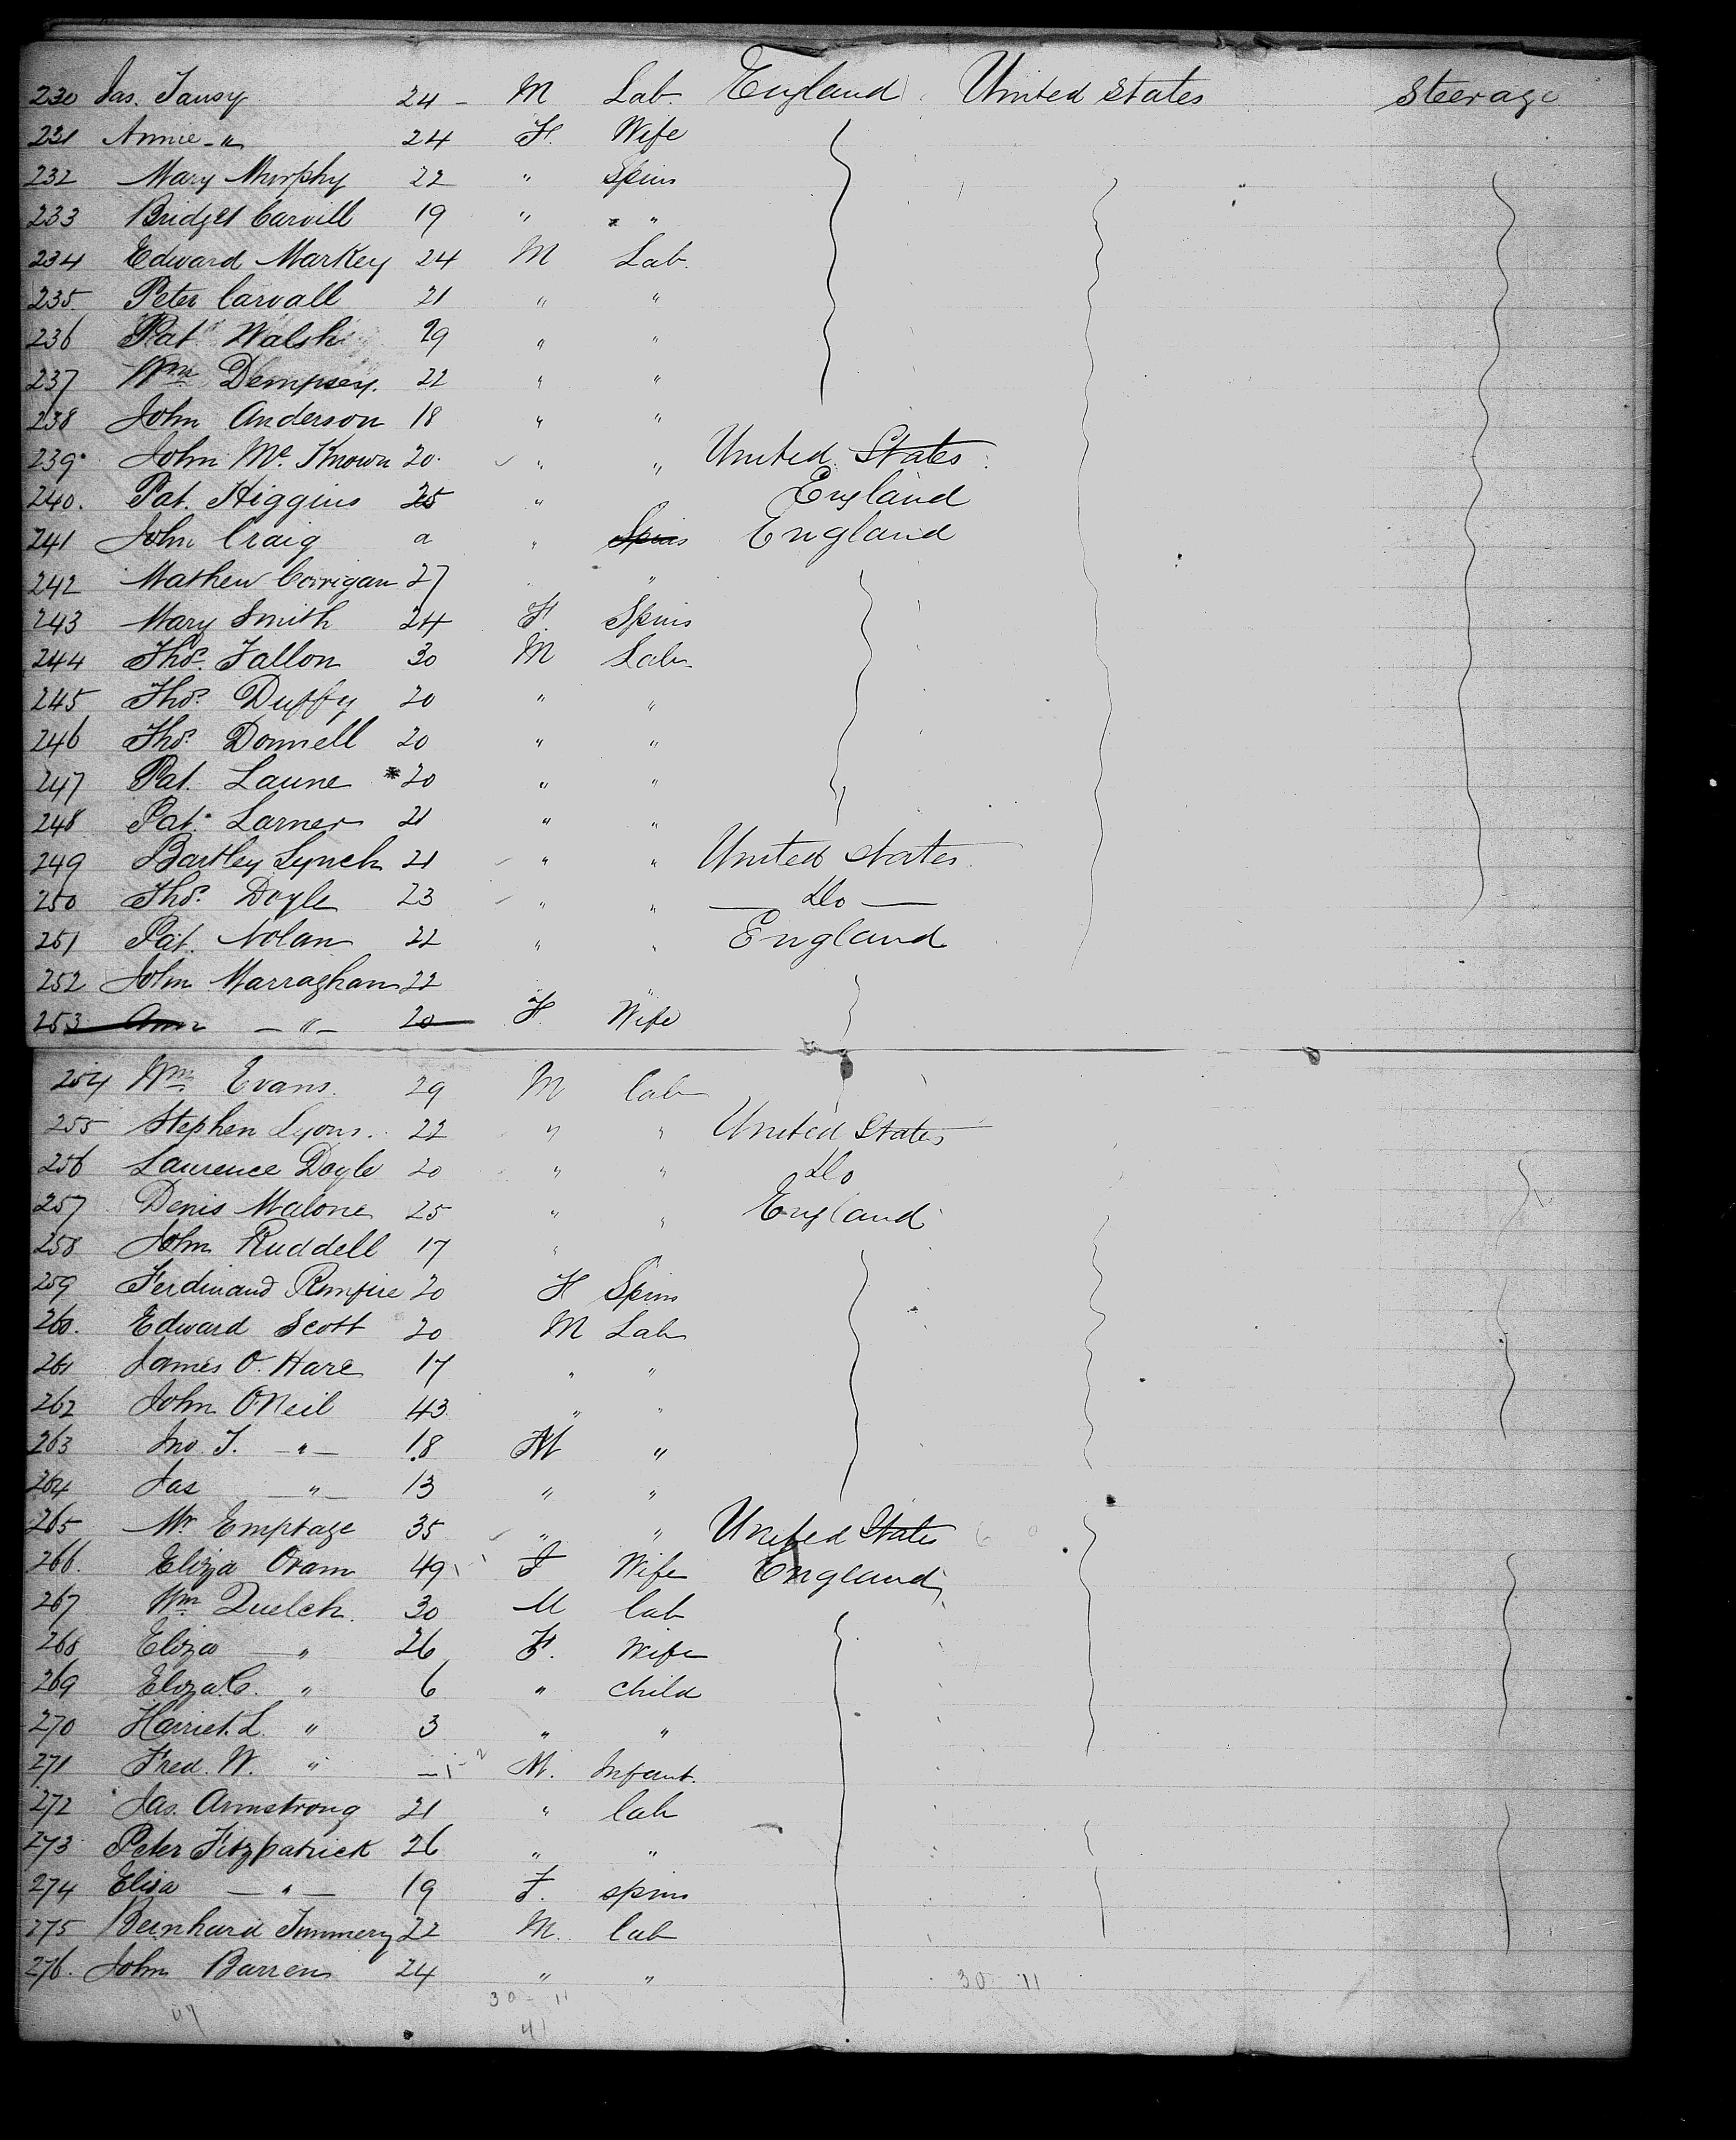 230 Jas. Tansy 24 - M Lab. England United States Steerage
231 Annie -"- 24 F. Wife
232 Mary Murphy 22 " Spins
233 Bridget Carvill 19 " "
234 Edward Markey 24 M Lab.
235. Peter Carvall 21 " "
236 Pat. Walsh 29 " "
237 Wm Dempsey. 22 " "
238 John Anderson 18 " "
239. John Mc. Known 20. " " United States
240. Pat. Higgins 25 " England
241 John Craig a " Spins England
242 Mathew Corrigan 27 "
243 Mary Smith 24 F. Spins
244 Thos. Fallon 30 M Lab.
245 Thos. Duffy 20 " "
246 Thos. Donnell 20 " "
247 Pat. Laune * 20 " "
248 Pat. Larner 21 " "
249 Bartley Lynch 21 " " United States
250 Thos. Doyle 23 " " — Do —
251 Pat. Nolan 22 " " England
252 John Marraghan 22 " "
253 Ann -"- 20 F. Wife
254 Wm Evans. 29 M lab
255 Stephen Lyons. 22 " " United States
256 Laurence Doyle 20 " " Do
257 Denis Malone 25 " " England
258 John Ruddell 17 "
259 Ferdinand 20 F Spins
260. Edward Scott 20 M Lab
261 James O. Hare 17 " "
262 John O'Neil 43 " "
263 Jno. T. -"- 18 M "
264 Jas -"- 13 " "
265 Mr Emptage 35 " " United States
266. Eliza Oram 49 F Wife England
267 Wm Quelch. 30 M lab
268 Eliza -"- 26 F. Wife
269 Eliza C. " 6 " child
270 Harriet. L. " 3 " "
271 Fred. W. " M. Infant.
272 Jas. Armstrong 21 " lab
273 Peter Fitzpatrick 26 " "
274 Eliza -"- 19 F. spins
275 Bernhard 22 M. lab
276. John Barren 24 " "
30 - 11 30 11
47 41